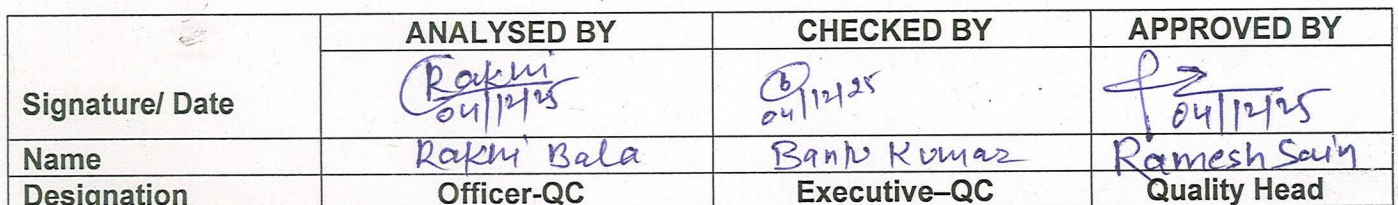 ANALYSED BY CHECKED BY APPROVED BY
Signature/ Date Rakhi 04/12/25 04/12/25 04/12/25
Name Rakhi Bala Kumar Ramesh Sain
Designation Officer-QC Executive–QC Quality Head